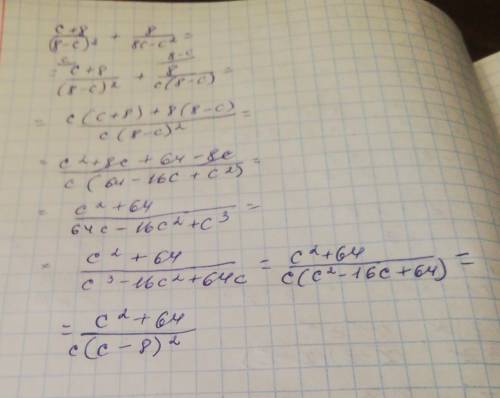 (c+8)/(8-c)² + 8/(8c-c²) =
= ᶜ (c+8)/(8-c)² + ⁸⁻ᶜ 8/(c(8-c)) =
= (c(c+8)+8(8-c))/(c(8-c)²) =
= (c²+8c+64-8c)/(c(64-16c+c²)) =
= (c²+64)/(64c-16c²+c³) =
= (c²+64)/(c³-16c²+64c) = (c²+64)/(c(c²-16c+64)) =
= (c²+64)/(c(c-8)²)